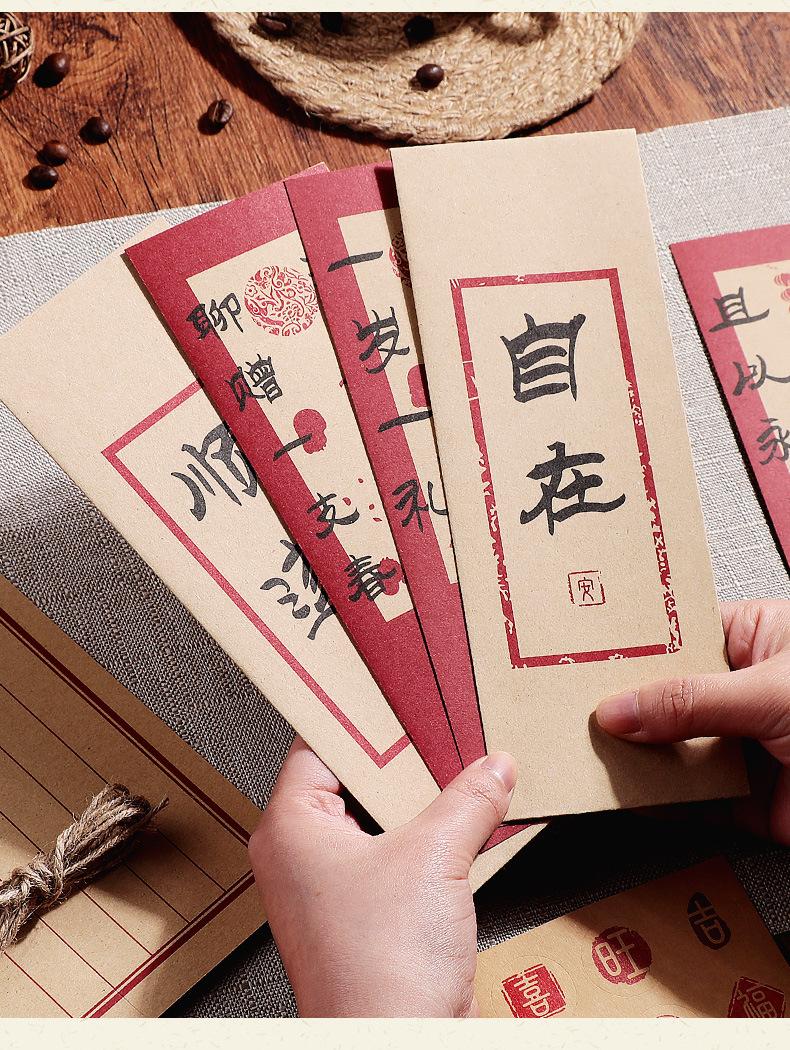 顺
聊赠一支春
一岁一礼
自在
安
且以永
喜
旺
吉
福